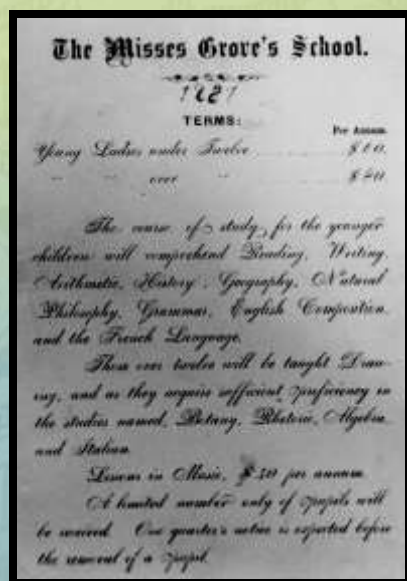 The Misses Grove's School.
TERMS:
Per Annum.
Young Ladies under Twelve
" " over "
The course of study, for the younger
children will comprehend Reading, Writing,
Arithmetic, History, Geography, Natural
Philosophy, Grammar, English Composition,
and the French Language.
Those over twelve will be taught Draw-
ing, and as they acquire sufficient proficiency in
the studies named, Botany, Rhetoric, Algebra
and Italian.
Lessons in Music, per annum.
A limited number only of pupils will
be received. One quarter's notice is expected before
the removal of a pupil.